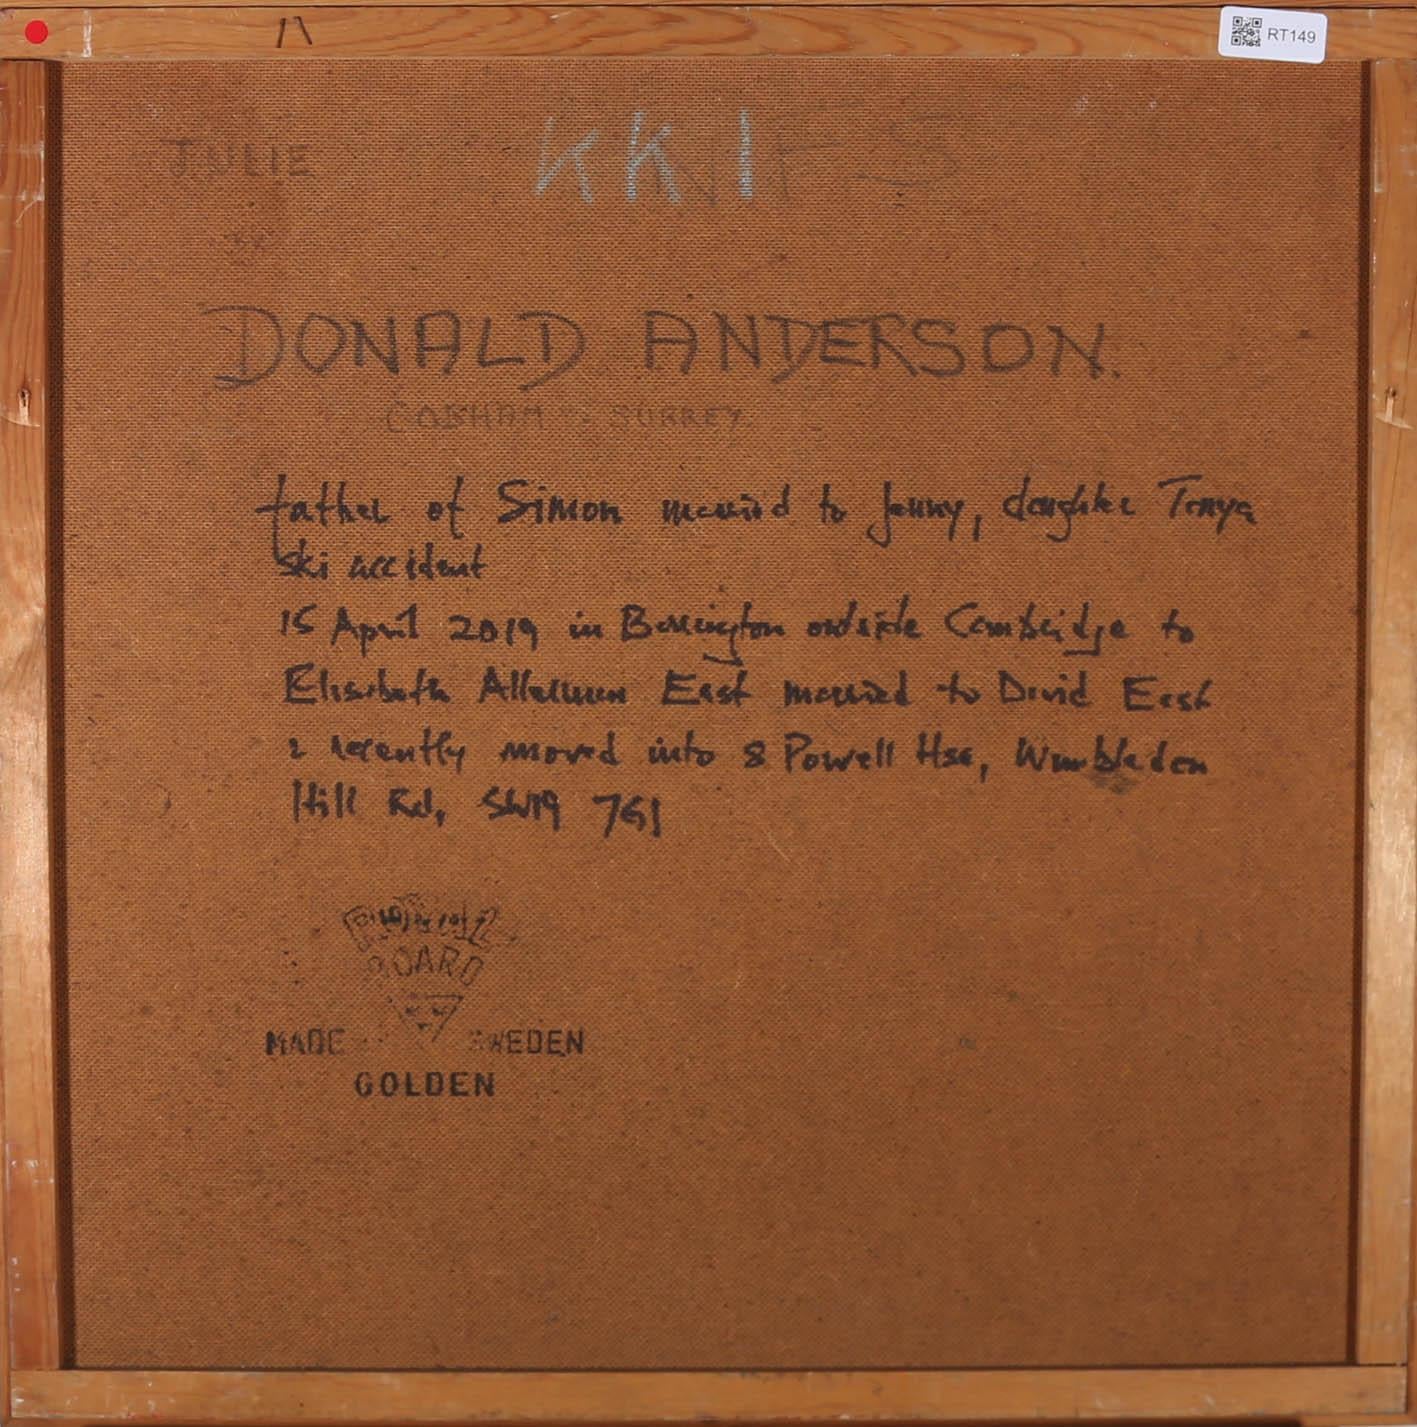 RT149
JULIE
KK1
DONALD ANDERSON.
COBHAM - SURREY.
father of Simon married to Jenny, daughter Tonya
ski accident
15 April 2019 in Barrington outside Cambridge to
Elisabeth East married to David East
& recently moved into 8 Powell Hse, Wimbledon
Hill Rd, SW19
BOARD
MADE SWEDEN
GOLDEN